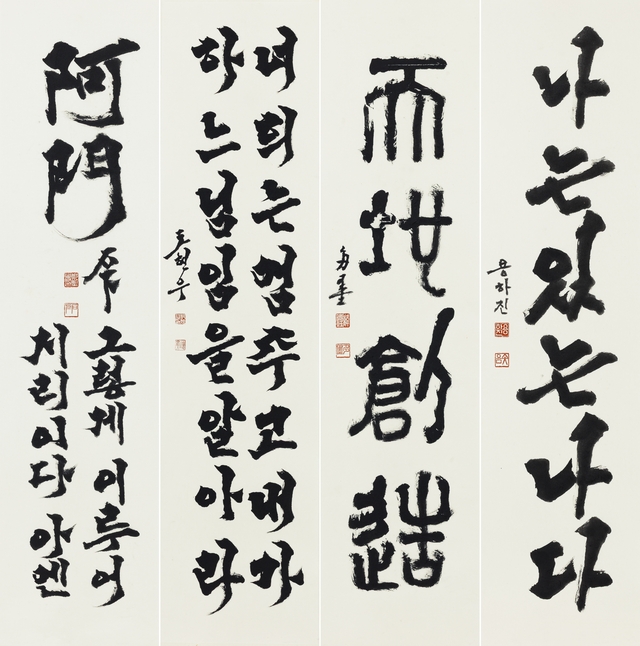 나는있는나다
용하진
天地創造
너희는멈추고내가
하느님임을알아라
阿門
그렇게 이루어
지리이다 아멘